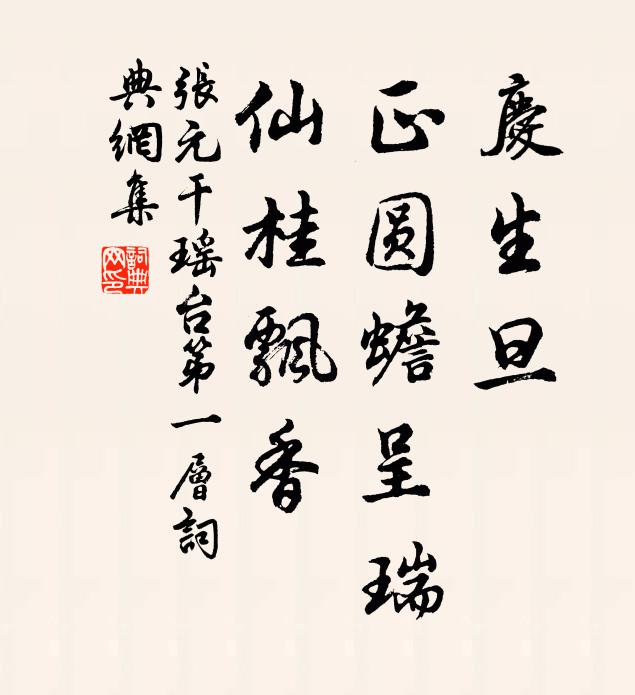 慶生旦
正圓蟾呈瑞
仙桂飄香
張元干瑶台第一層詞
典網集
詞典网印